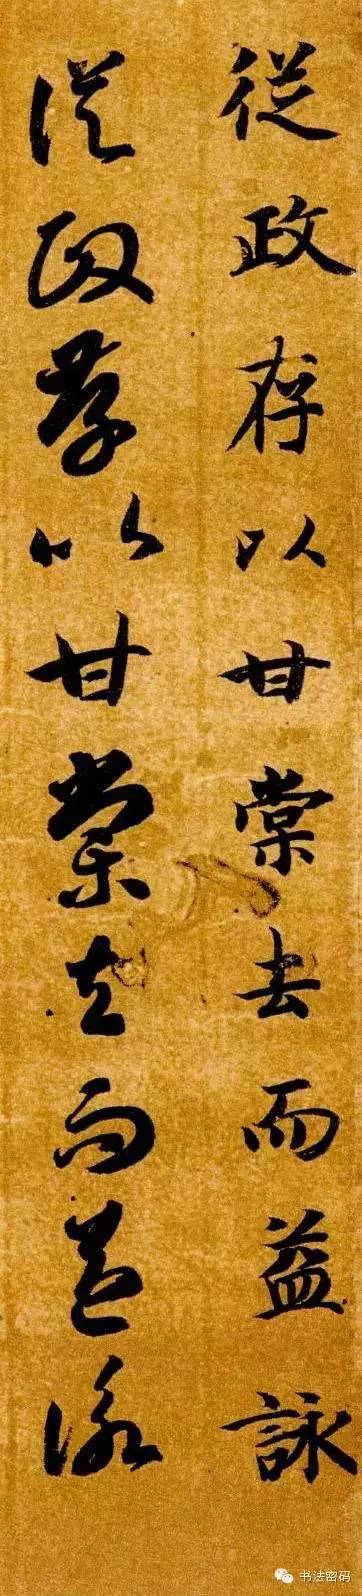 從政存以甘棠去而益詠
從政存以甘棠去而益詠
书法密码